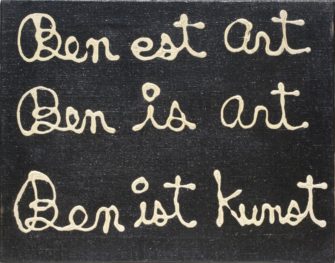 Ben est art
Ben is art
Ben ist kunst